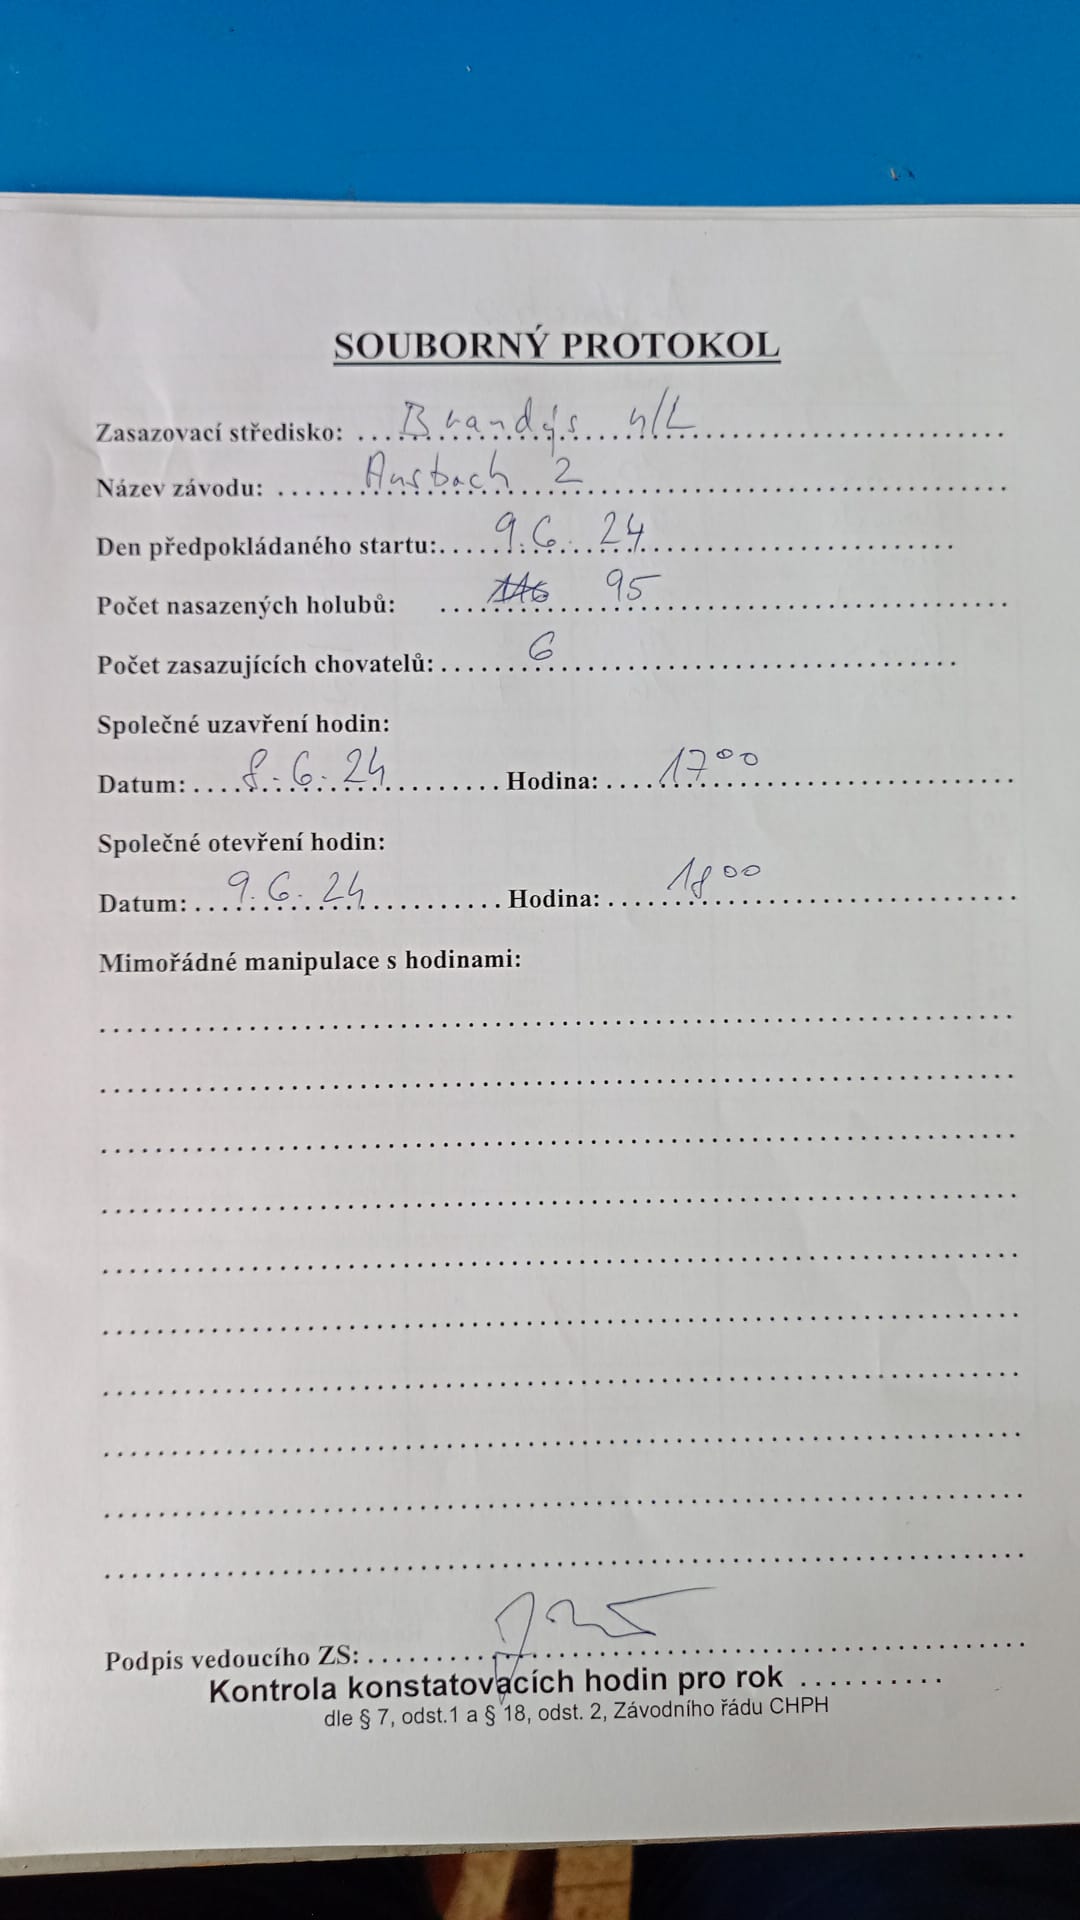 SOUBORNÝ PROTOKOL
Zasazovací středisko: Brandýs n/L
Název závodu: Ansbach 2
Den předpokládaného startu: 9.6. 24
Počet nasazených holubů: 116 95
Počet zasazujících chovatelů: 6
Společné uzavření hodin:
Datum: 8.6.24 Hodina: 17⁰⁰
Společné otevření hodin:
Datum: 9.6.24 Hodina: 18⁰⁰
Mimořádné manipulace s hodinami:
Podpis vedoucího ZS:
Kontrola konstatovacích hodin pro rok ..........
dle § 7, odst.1 a § 18, odst. 2, Závodního řádu CHPH